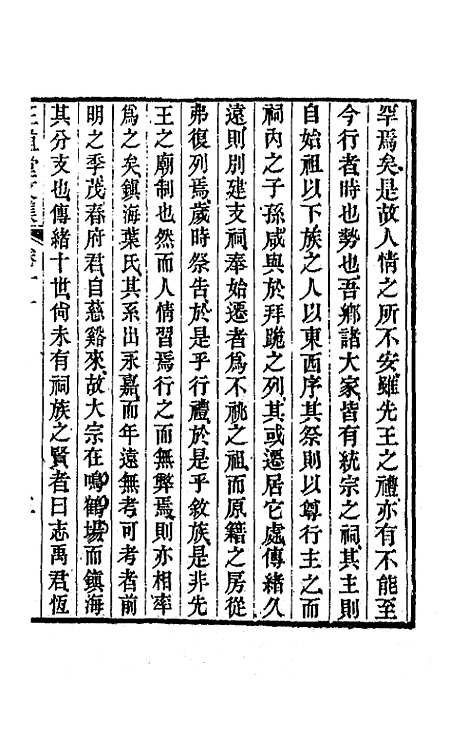 罕焉矣是故人情之所不安雖先王之禮亦有不能至
今行者時也勢也吾鄉諸大家皆有統宗之祠其主則
自始祖以下族之人以東西序其祭則以尊行主之而
祠內之子孫咸與於拜跪之列其或遷居它處傳緒久
遠則別建支祠奉始遷者爲不祧之祖而原籍之房從
弗復列焉歲時祭告於是乎行禮於是乎敘族是非先
王之廟制也然而人情習焉行之而無弊焉則亦相率
爲之矣鎮海葉氏其系出永嘉而年遠無考可考者前
明之季茂春府君自慈谿來故大宗在鳴鶴場而鎮海
其分支也傳緒十世尙未有祠族之賢者曰志禹君恆